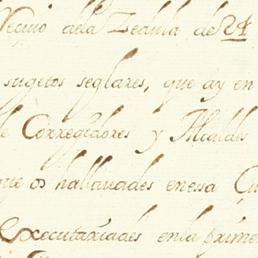 Vecino dela Zedula de 24
sugetos seglares, que ay en
de Corregidores y Alcaldes
que os hallauades enesa Ciu
executariades enla prime